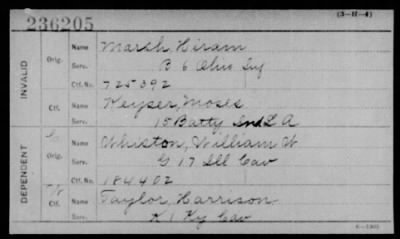 236205
(3-H-4)
INVALID
Orig.
Name Marsh, Hiram
Serv. B 6 Ohio Inf
Ctf. No. 725392
Ctf.
Name Keyser, Moses
Serv. 15 Batty Ind L A
DEPENDENT
Orig.
Name Whiston, William W
Serv. G 17 Ill Cav
Ctf. No. 184402
Ctf.
Name Taylor, Harrison
Serv. K 1 Ky Cav